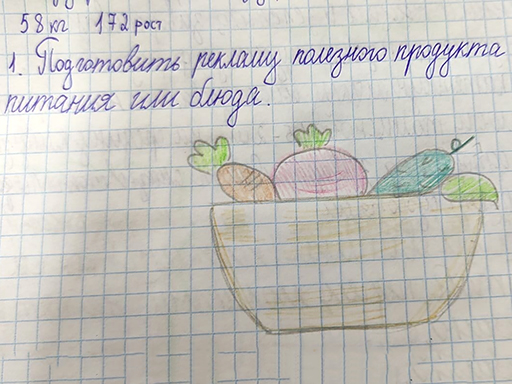 58 кг 172 рост
1. Подготовить рекламу полезного продукта
питания или блюда.